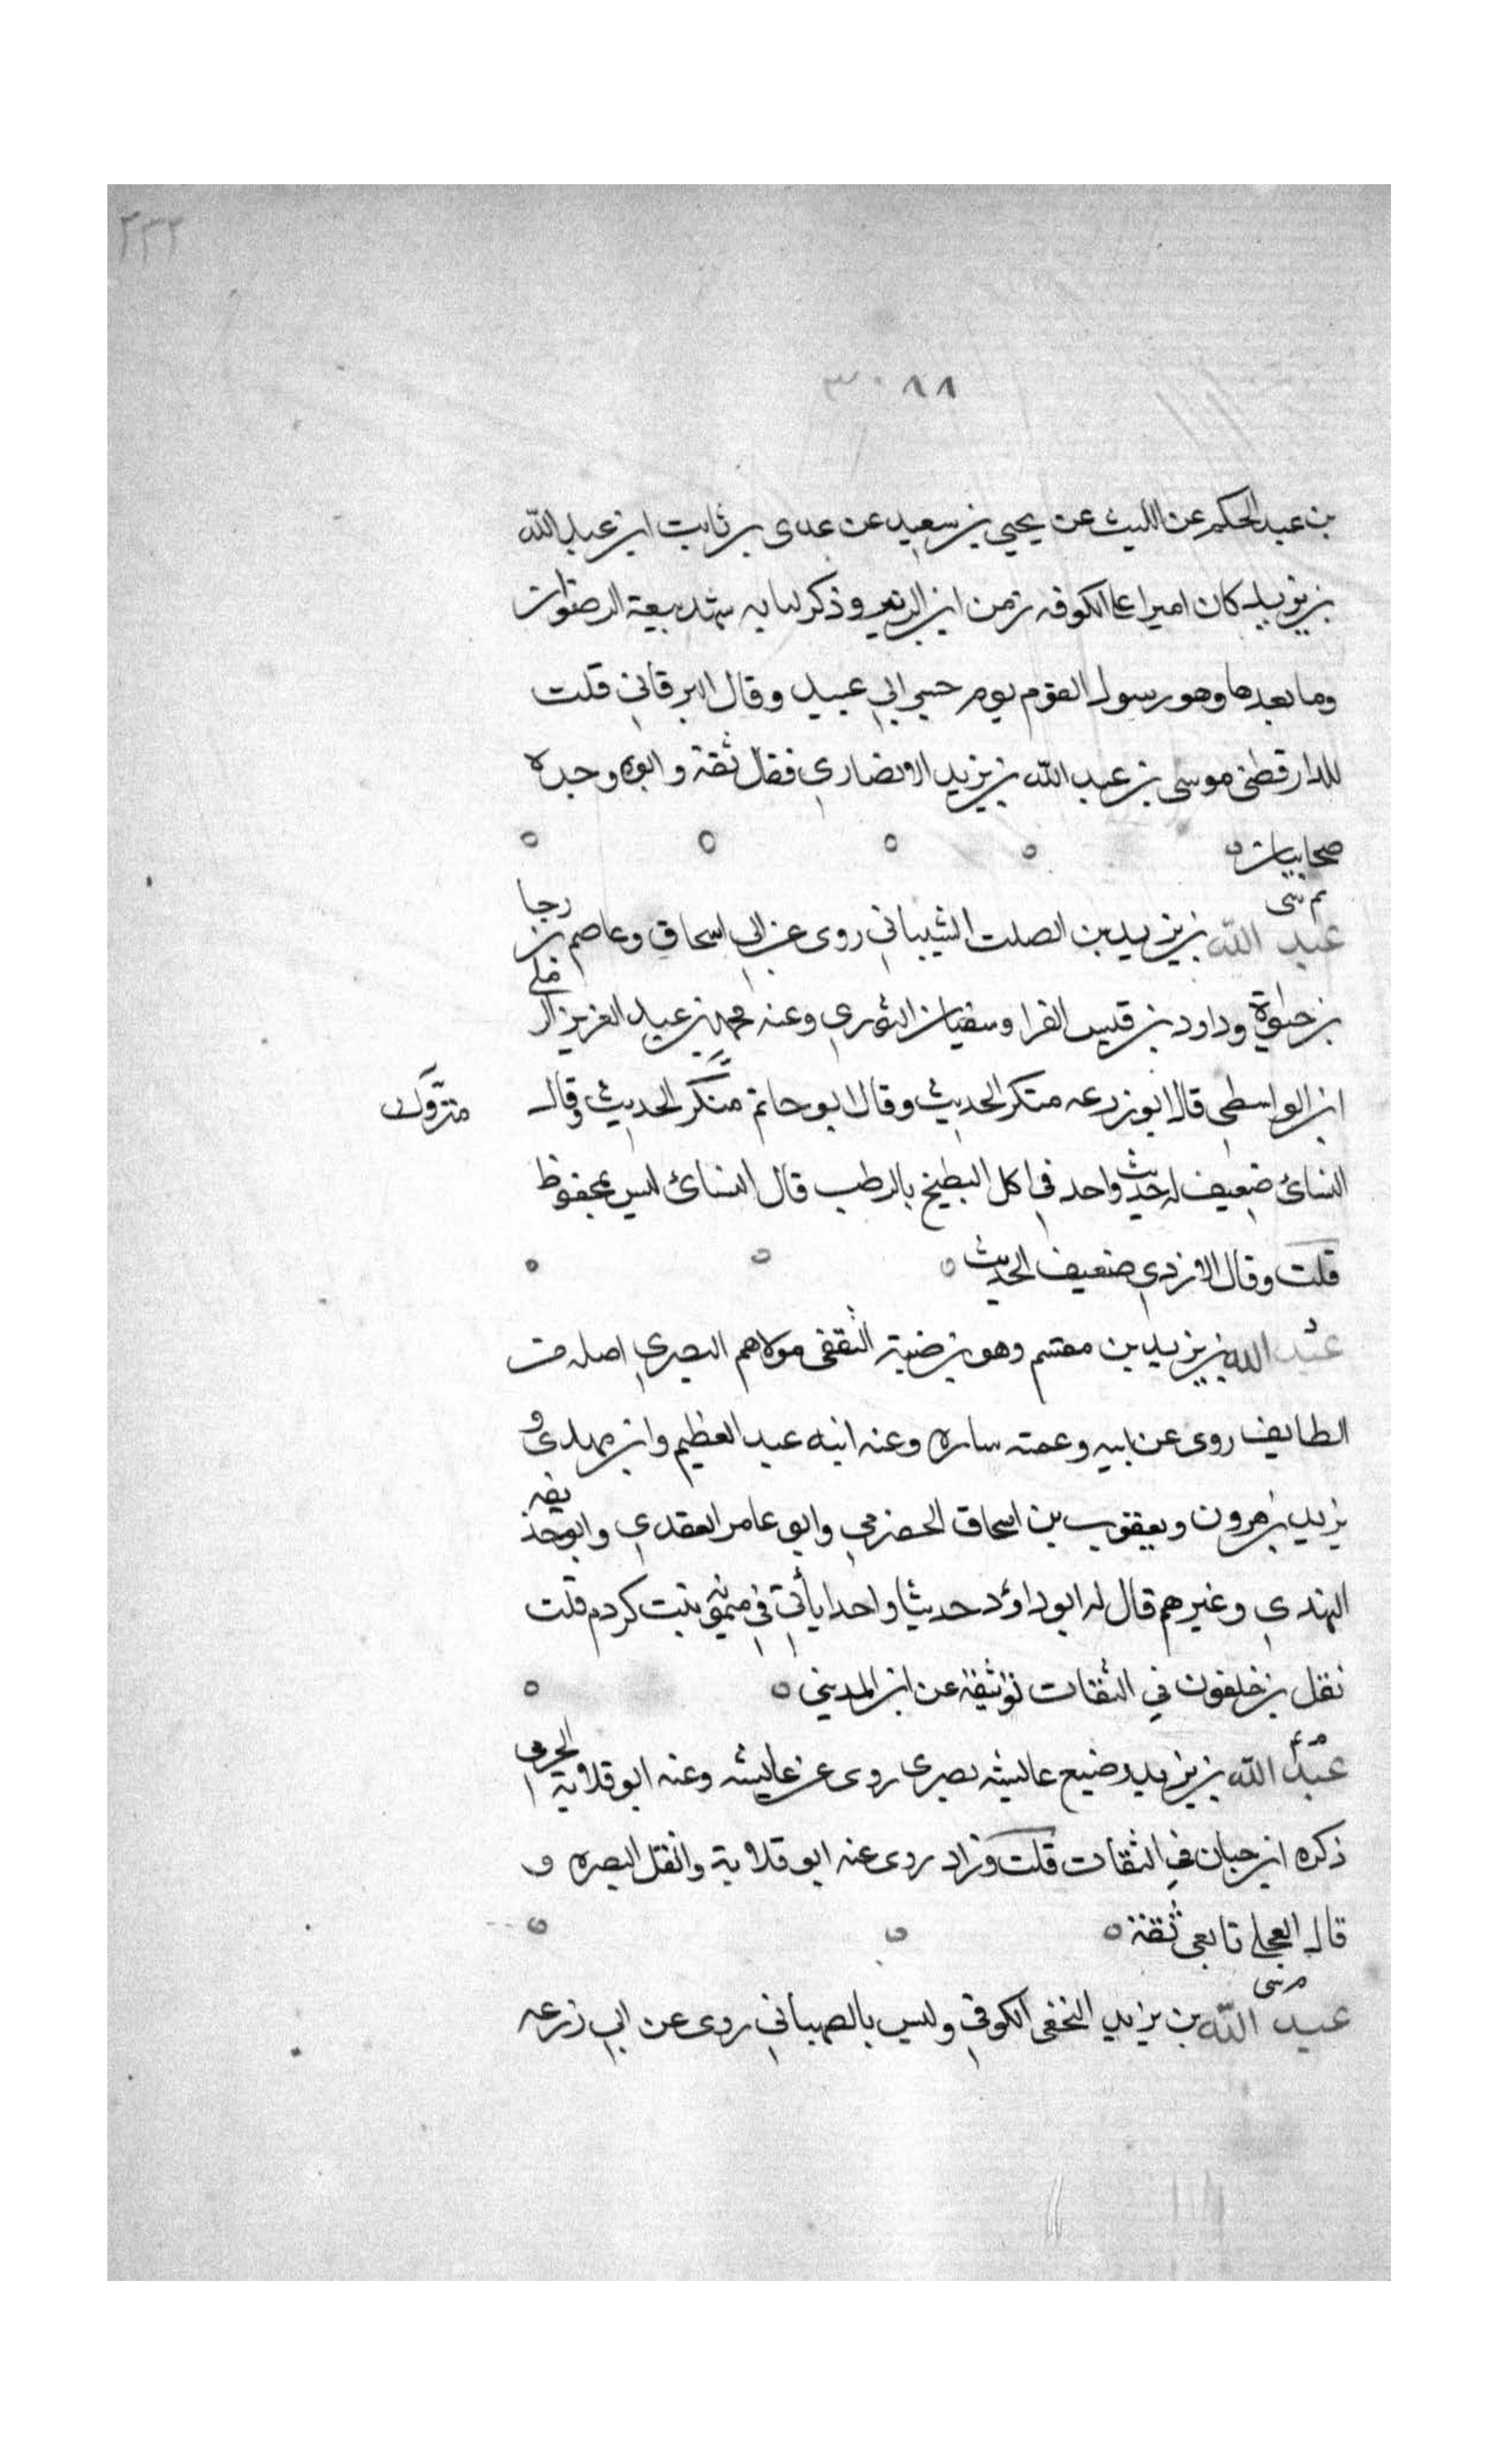 ٢٣٢
٣٠٨٨
بن عبد الحكم عن الليث عن يحيي بن سعيد عن عدى بن ثابت ان عبد الله
بن يزيد كان اميرا على الكوفه زمن ابن الزبير وذكر لنا به شهد بيعة الرضوان
وما بعدها وهو رسول القوم يوم جسر ابي عبيد وقال البرقاني قلت
للدارقطني موسى بن عبد الله بن يزيد الانصاري فقال ثقة وابوه وجده
صحابيان
تم سى
عبد الله بن يزيد بن الصلت الشيباني روى عن ابي اسحاق وعاصم بن رجا
بن حيوة وداود بن قيس الفرا وسفيان الثوري وعنه محمد بن عبد العزيز الرملي
ابن الواسطي قال ابو زرعه منكر الحديث وقال ابو حاتم منكر الحديث وقال
متروك
النسائ ضعيف له حديث واحد في اكل البطيخ بالرطب قال النسائ ليس بمحفوظ
قلت وقال الازدي ضعيف الحديث
د
عبد الله بن يزيد بن مقسم وهو بن ضبة الثقفى مولاهم البصري اصله من
الطايف روى عن ابيه وعمته ساره وعنه ابنه عبد العظيم وابن مهدى و
يزيد بن هرون ويعقوب بن اسحاق الحضرمي وابو عامر العقدي وابو حذيفه
النهدي وغيرهم قال له ابو داؤد حديثا واحدا يأتي في ميمونه بنت كردم قلت
نقل بن خلفون في الثقات توثيقه عن ابن المديني
م ع
عبد الله بن يزيد رضيع عايشه بصرى روى عن عايشه وعنه ابو قلابة الجرمى
ذكره ابن حبان في الثقات قلت وزاد روى عنه ابو قلابة وانقل البصره و
قال العجلى تابعى ثقة
م سى
عبد الله بن يزيد النخعى الكوفي وليس بالصهباني روى عن ابي زرعه